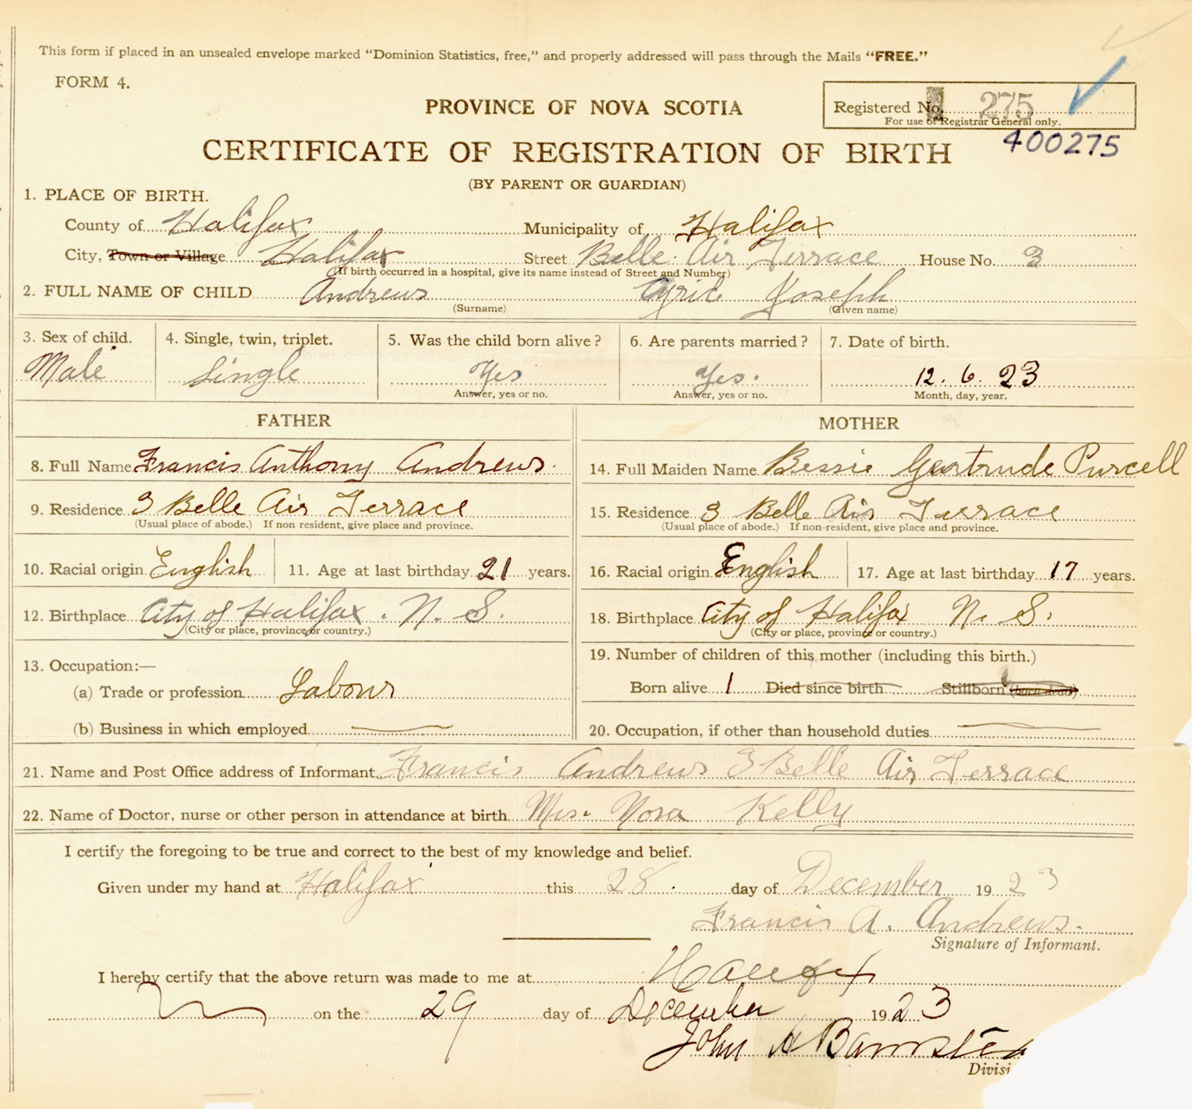 This form if placed in an unsealed envelope marked "Dominion Statistics, free," and properly addressed will pass through the Mails "FREE."
FORM 4.
PROVINCE OF NOVA SCOTIA
Registered No. 275
For use of Registrar General only.
400275
CERTIFICATE OF REGISTRATION OF BIRTH
(BY PARENT OR GUARDIAN)
1. PLACE OF BIRTH.
County of Halifax Municipality of Halifax
City, Town or Village Halifax Street Belle Air Terrace House No. 3
(If birth occurred in a hospital, give its name instead of Street and Number)
2. FULL NAME OF CHILD Andrews Cyril Joseph
(Surname) (Given name)
3. Sex of child. 4. Single, twin, triplet. 5. Was the child born alive? 6. Are parents married? 7. Date of birth.
Male Single Yes Yes. 12. 6. 23
Answer, yes or no. Answer, yes or no. Month, day, year.
FATHER
8. Full Name Francis Anthony Andrews.
9. Residence 3 Belle Air Terrace
(Usual place of abode.) If non resident, give place and province.
10. Racial origin English 11. Age at last birthday 21 years.
12. Birthplace City of Halifax. N. S.
(City or place, province or country.)
13. Occupation:—
(a) Trade or profession Labour
(b) Business in which employed
MOTHER
14. Full Maiden Name Bessie Gertrude Purcell
15. Residence 3 Belle Air Terrace
(Usual place of abode.) If non-resident, give place and province.
16. Racial origin English 17. Age at last birthday 17 years.
18. Birthplace City of Halifax N. S.
(City or place, province or country.)
19. Number of children of this mother (including this birth.)
Born alive 1 Died since birth Stillborn (born dead)
20. Occupation, if other than household duties
21. Name and Post Office address of Informant Francis Andrews 3 Belle Air Terrace
22. Name of Doctor, nurse or other person in attendance at birth Mrs. Nora Kelly
I certify the foregoing to be true and correct to the best of my knowledge and belief.
Given under my hand at Halifax this 28. day of December 1923
Francis A. Andrews.
Signature of Informant.
I hereby certify that the above return was made to me at Halifax
on the 29 day of December 1923
John A